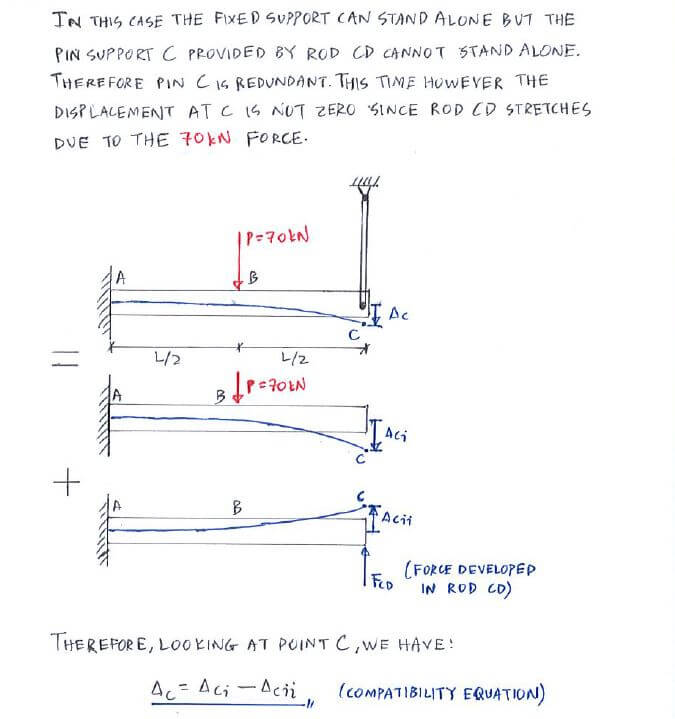 IN THIS CASE THE FIXED SUPPORT CAN STAND ALONE BUT THE
PIN SUPPORT C PROVIDED BY ROD CD CANNOT STAND ALONE.
THEREFORE PIN C IS REDUNDANT. THIS TIME HOWEVER THE
DISPLACEMENT AT C IS NOT ZERO SINCE ROD CD STRETCHES
DUE TO THE 70kN FORCE.
P=70kN
A
B
Δc
C
L/2
L/2
=
A
B
P=70kN
Δci
C
+
A
B
C
Δcii
FCD
(FORCE DEVELOPED
IN ROD CD)
THEREFORE, LOOKING AT POINT C, WE HAVE:
Δc = Δci − Δcii
(COMPATIBILITY EQUATION)